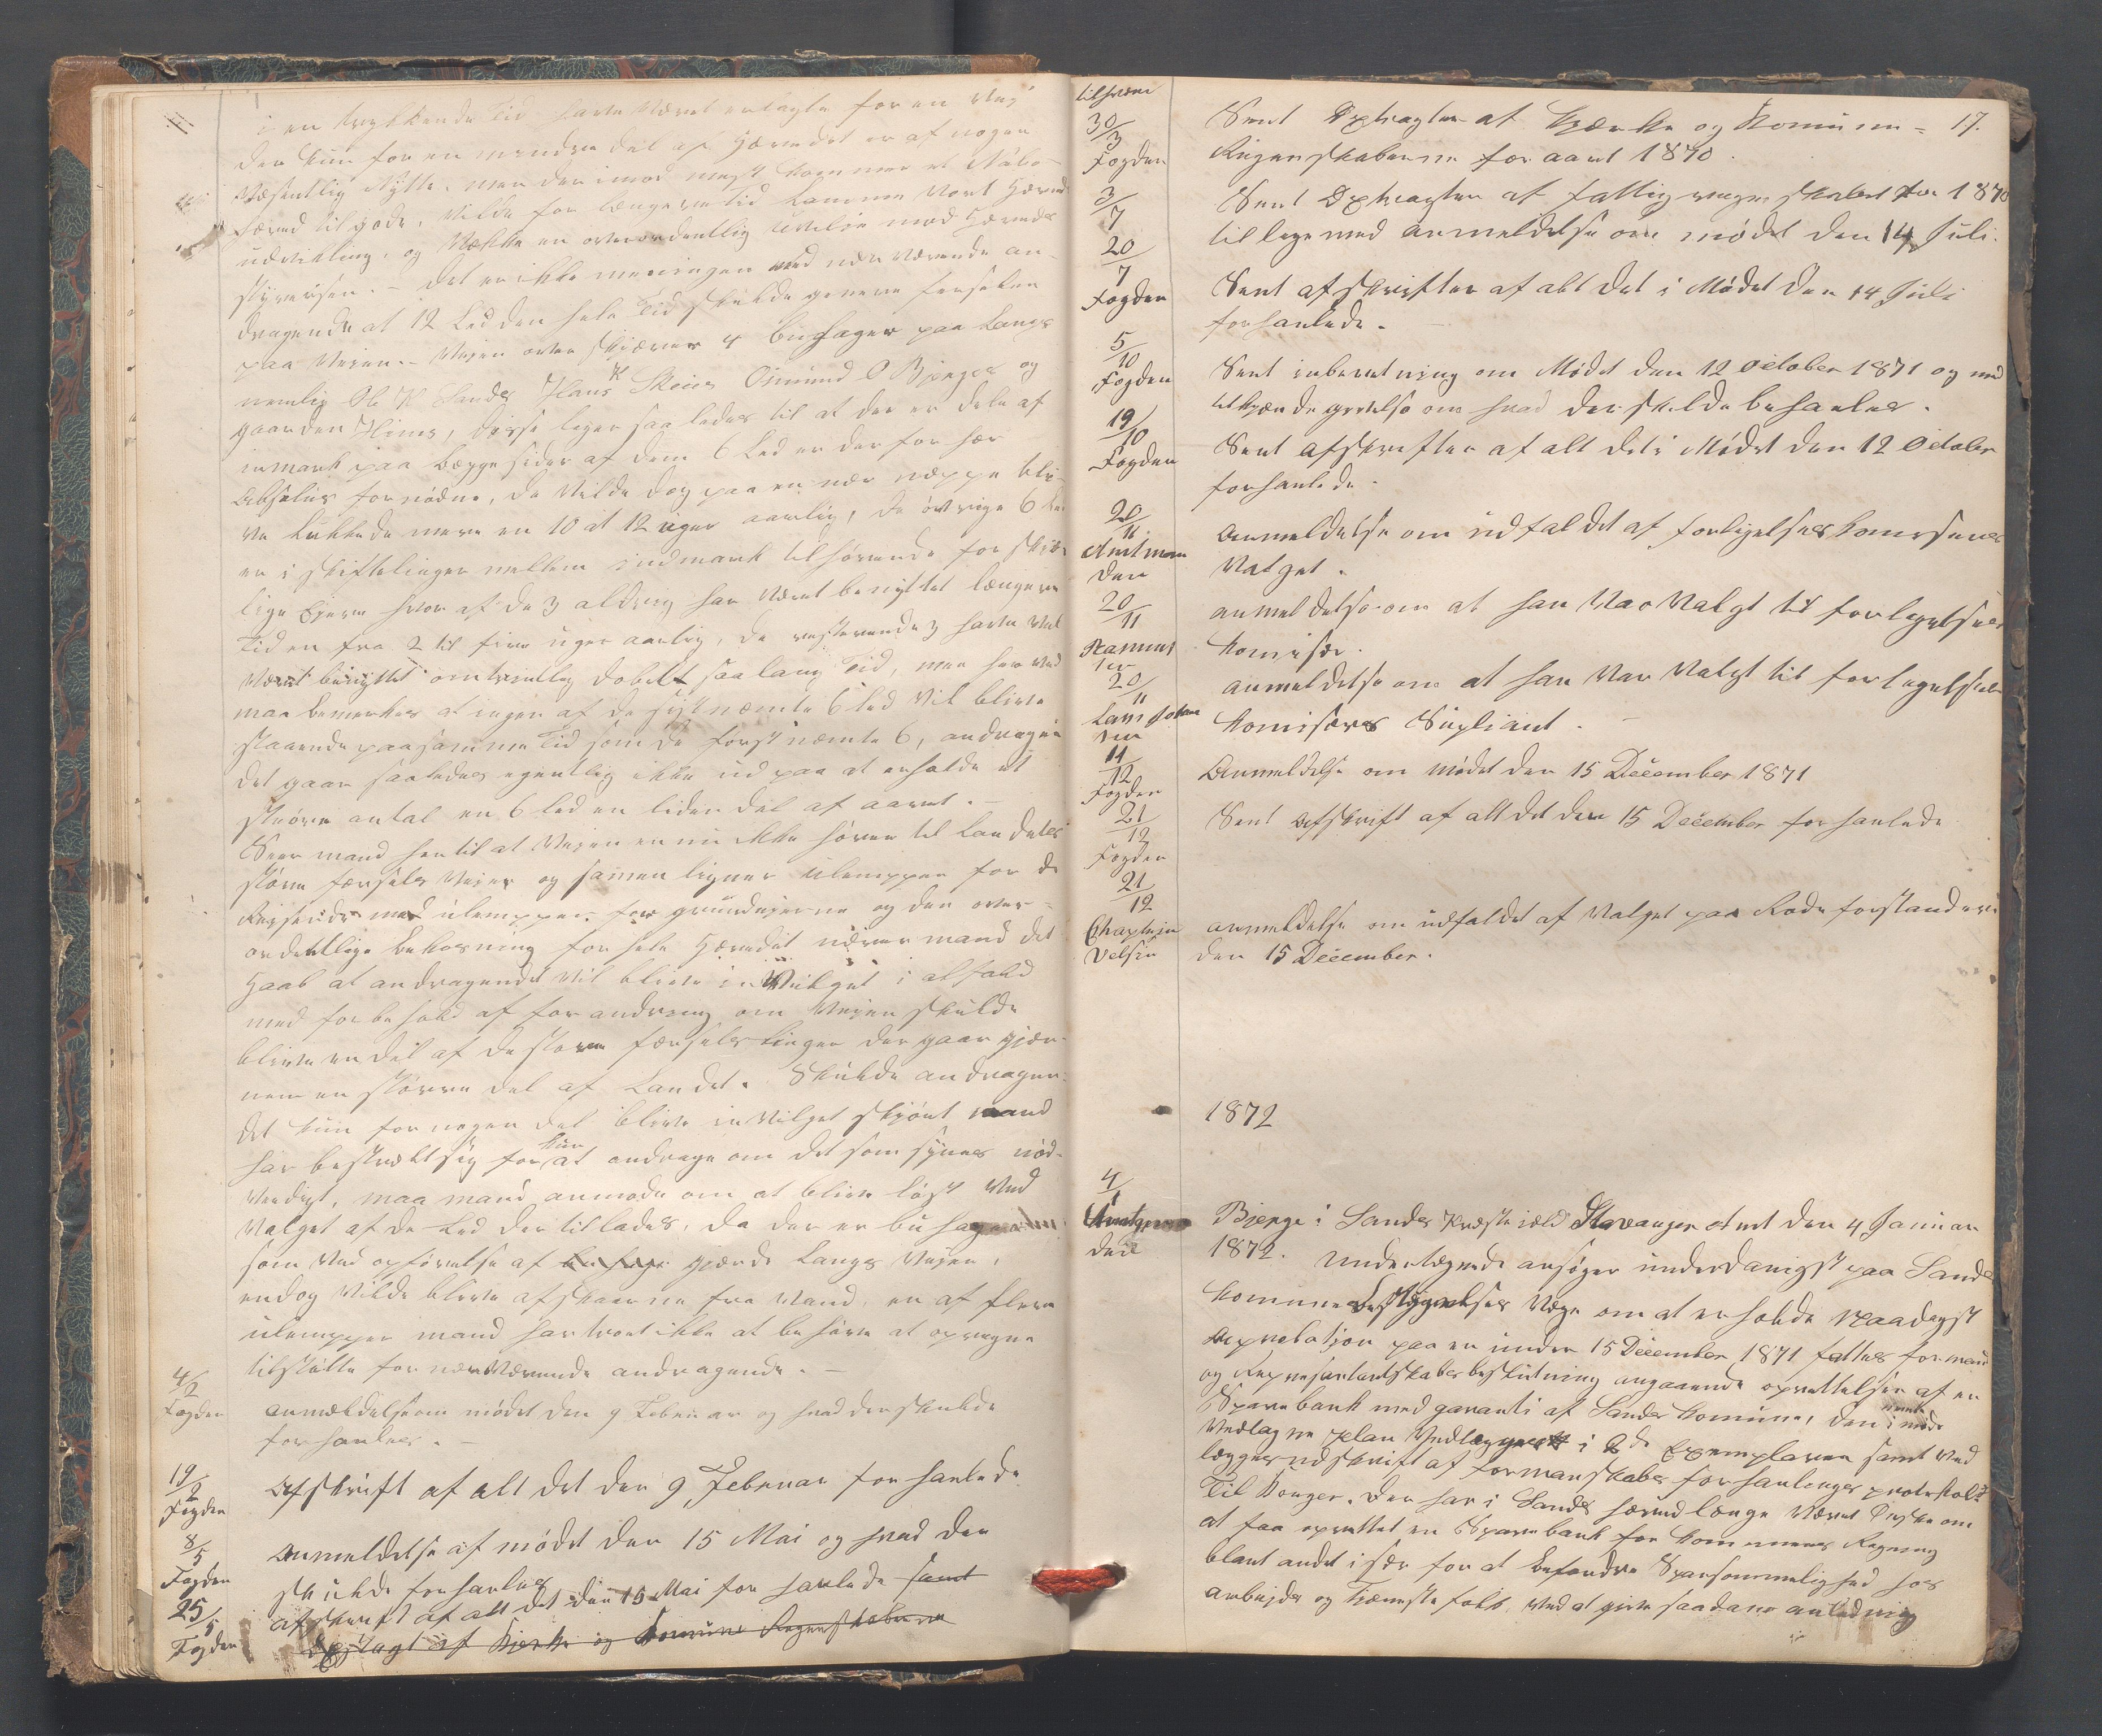 i en trykkende Tid havde Været erlagte for en Vej
der kun for en mindre del af Hæredet er af nogen
Væsentlig Nytte, men derimod mest kommer et Nabo-
hæred til gode, vilde for længere tid lamme Vort Hæreds
udvikling, og Vække en overordentlig Uvilje mod Hæreds
styrelsen. – Det er ikke meningen med nærværende an-
dragende at 12 Led den hele Tid skulde genere færselen
paa Vejen. – Vejen overskjærer 4 buhager paa Langs
nemlig Ole K Sandes Hans K Skeies Osmund O Bjerges og
gaarden Hiims, disse liger saaledes til at der er dele af
inmark paa begge sider af dem 6 Led er derfor her
Absolut fornødne, de vilde dog paa en nær næppe bli-
ve lukkede mere en 10 a 12 uger aarlig, de øvrige 6 Led
er i skiftelinger mellem indmark tilhørende forskjel-
lige Ejere hvor af de 3 aldrig har været benyttet længere
Tid en fra 2 til fire uger aarlig, de resterende 3 have vel
Været benyttet omtrentlig dobelt saa lang Tid, men her ved
maa bemerkes at ingen af de sistnæmte 6 led vil blive
staaende paa samme Tid som de først næmte 6, andragen
det gaar saaledes egentlig ikke ud paa at erholde et
større antal en 6 led en liden del af aaret. –
Seer mand hen til at Vejen er nu ikke hører til Landets
større færsels Veier og sammenligner ulemppen for de
Reisende med ulemppen for grundejerne og den over-
ordentlige bekosning for hele Hæredet nærer mand det
Haab at andragendet vil blive inVilget i alfald
med forbehold af forandring om Vejen skulde
blive en del af de større færselslinger der gaar gjæn-
nem en større del af Landet. Skulde andragen-
det kun for nogen del blive inVilget skjønt mand
har bestræbt sig for kun at andrage om det som synes nød-
vendigt, maa mand anmode om at blive løst Ved
Valget af de Led der tillades, da der er buhager
som Ved opførelse af gjærde Langs Vejen,
endog vilde blive afskaarne fra Vand, en af flere
ulempper mand har troet ikke at behøve at opregne
tilstøtte for nærværende andragende. –
4/2
Fogden
anmeldelse om mødet den 9 Februar og hvad der skulde
forhanles. –
19/2
Fogden
Afskrift af alt det den 9 Februar forhanlede
8/5
Fogden
Anmeldelse af mødet den 15 Mai og hvad der
skulde forhanles
25/5
Fogden
afskrift af alt det den 15 Mai forhanlede samt
Exstragt af Kjerke og Komune Regenskaberne
tilskrevne
17.
30/3
Fogden
Sent Exstragter af Kjærke og Komune =
Regenskaberne for aaret 1870.
3/7
Sent Exstragter af fattigregenskabet for 1870
tillige med anmeldelse om mødet den 14 Juli.
20/7
Fogden
Sent afskrifter af alt det i Mødet den 14 Juli
forhanlede. –
5/10
Fogden
Sent inberetning om Mødet den 12 October 1871 og med
tilkjendegivelse om hvad der skulde behanles.
19/10
Fogden
Sent Afskrifter af alt det i Mødet den 12 October
forhanlede.
20/11
Amtman
den
Anmeldelse om udfaldet af forligelseskomisærs
Valget.
20/11
Rasmus
sen
anmeldelse om at han Var Valgt til forligelses
Komisær.
20/11
Lars Johan
sen
anmeldelse om at han Var Valgt til forligelses
Komisærs Supliant. –
14/12
Fogden
Anmeldelse om mødet den 15 December 1871
21/12
Fogden
Sent Afskrift af alt det den 15 December forhanlede
21/12
Chaplejn
Velsin
anmeldelse om udfaldet af Valget paa Rodeforstandere
den 15 December.
1872
4/1
Amtman
den
Bjerge i Sandes Præstejæld Stavanger Amt den 4 Januar
1872. Undertegnede ansøger underdanigst paa Sandes
Komunebestyrelses Vegne om at erholde Naadigst
Aprobation paa en under 15 December 1871 fattet formand
og Repræsentantskabsbeslutning angaaende oprettelsen af en
Sparebank med garanti af Sandes Komune, den i møde
Vedtagne plan Vedlægges i 2de Exemplarer samt Ved
lægges udskrift af Formanskabs forhanlinges protokol
Til Konger. Der har i Sandes hæred længe Været Ønske om
at faa oprettet en Sparebank for Kommunens Regning
blant andet især for at befordre Sparsommelighed hos
arbejder og Tjæneste folk Ved at give saadane anledning